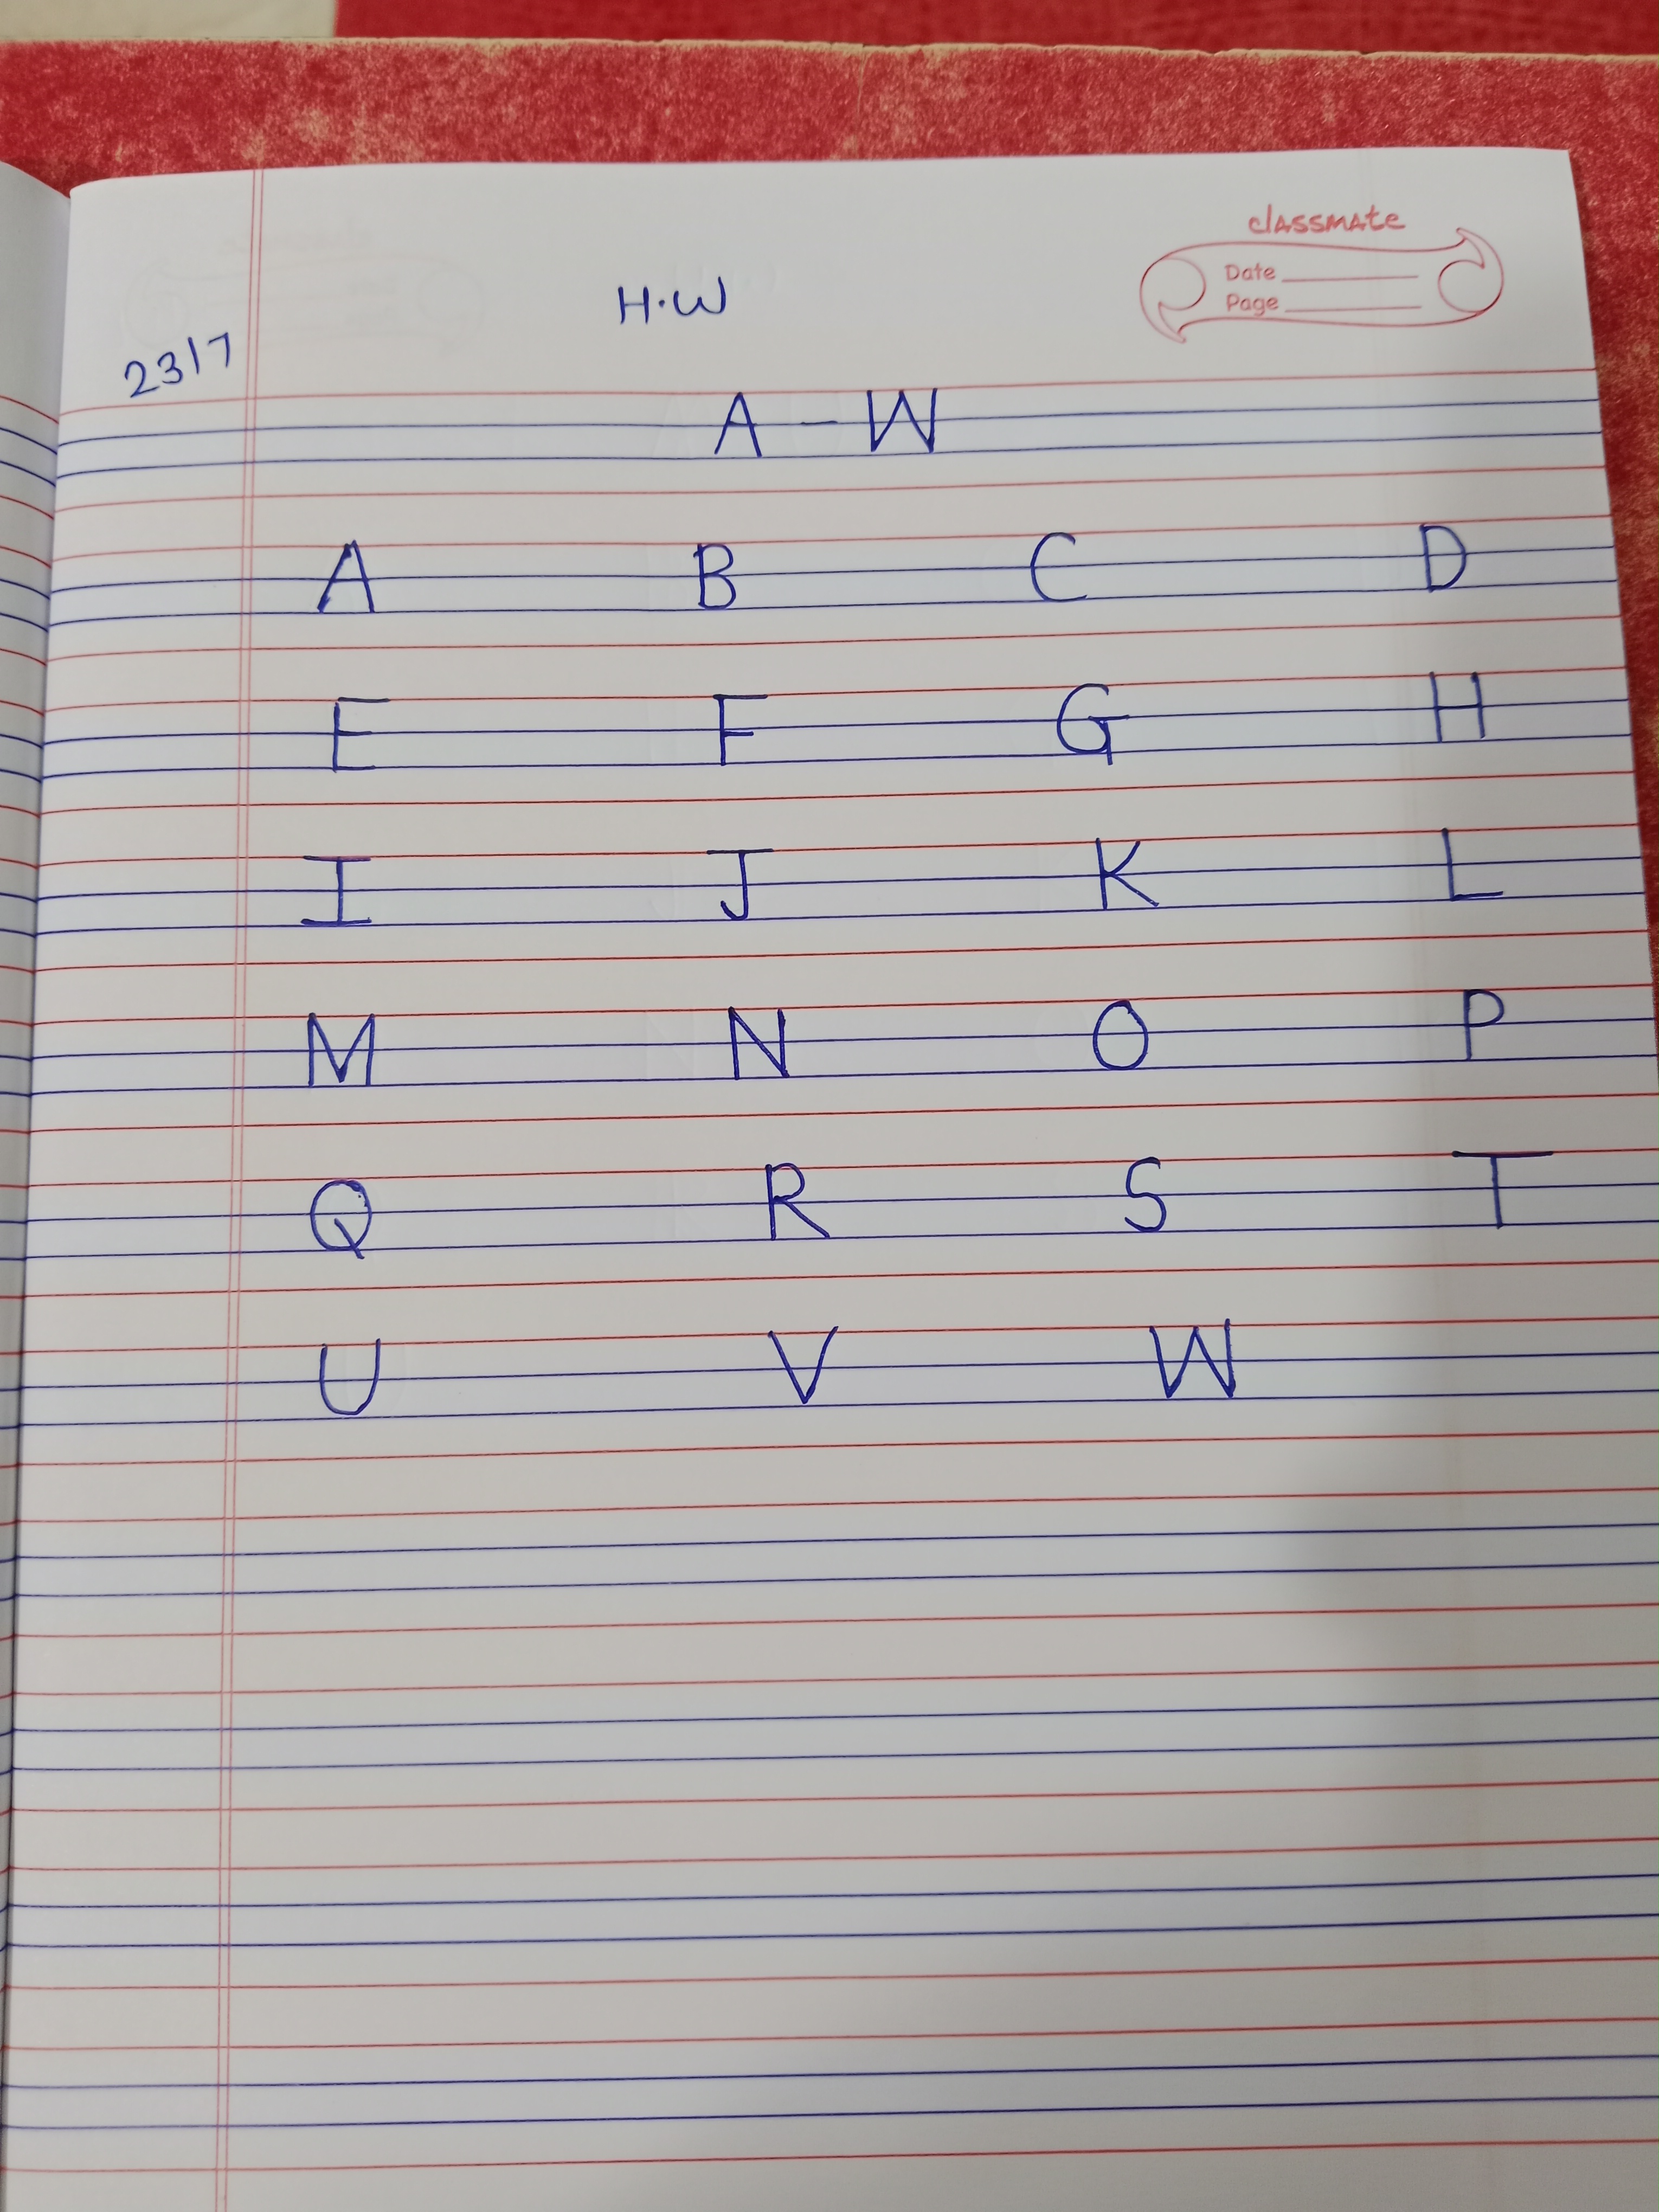 classmate
Date
Page
H.W
23/7
A - W
A B C D
E F G H
I J K L
M N O P
Q R S T
U V W